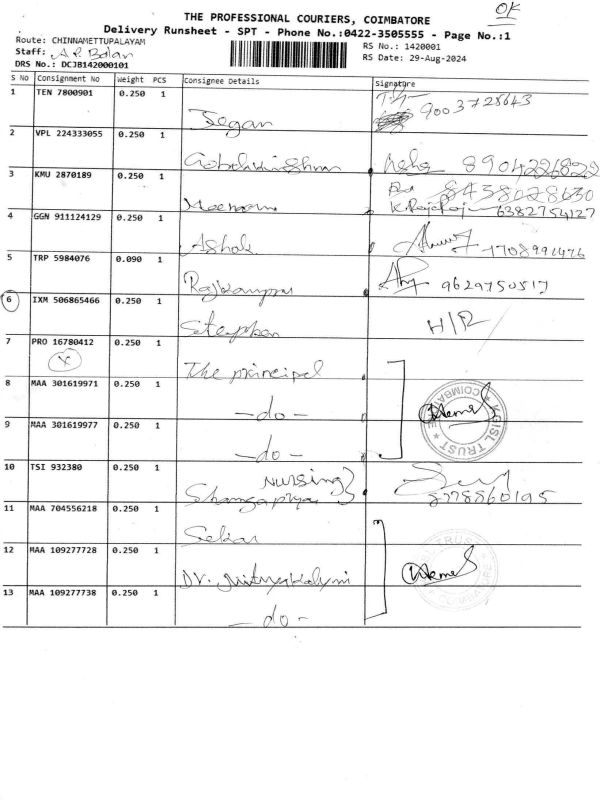 OK
THE PROFESSIONAL COURIERS, COIMBATORE
Delivery Runsheet - SPT - Phone No.:0422-3505555 - Page No.:1
Route: CHINNAMETTUPALAYAM
RS No.: 1420001
Staff:
RS Date: 29-Aug-2024
DRS No.: DCJB142000101
S No Consignment No Weight PCS Consignee Details Signature
1 TEN 7800901 0.250 1 Jegan 9003728643
2 VPL 224333055 0.250 1 8904226822
3 KMU 2870189 0.250 1 8438028630
K. Rajaraj 6382754127
4 GGN 911124129 0.250 1 Ashok
5 TRP 5984076 0.090 1 9629750517
6 IXM 506865466 0.250 1 Steaphen H/R
7 PRO 16780412 0.250 1 The principal
X
8 MAA 301619971 0.250 1 -do-
KGISL TRUST COIMBATORE
9 MAA 301619977 0.250 1 -do-
10 TSI 932380 0.250 1 Nursing 8778860195
11 MAA 704556218 0.250 1 Sekar
12 MAA 109277728 0.250 1 Dr. Nithyakalyni
13 MAA 109277738 0.250 1 -do-